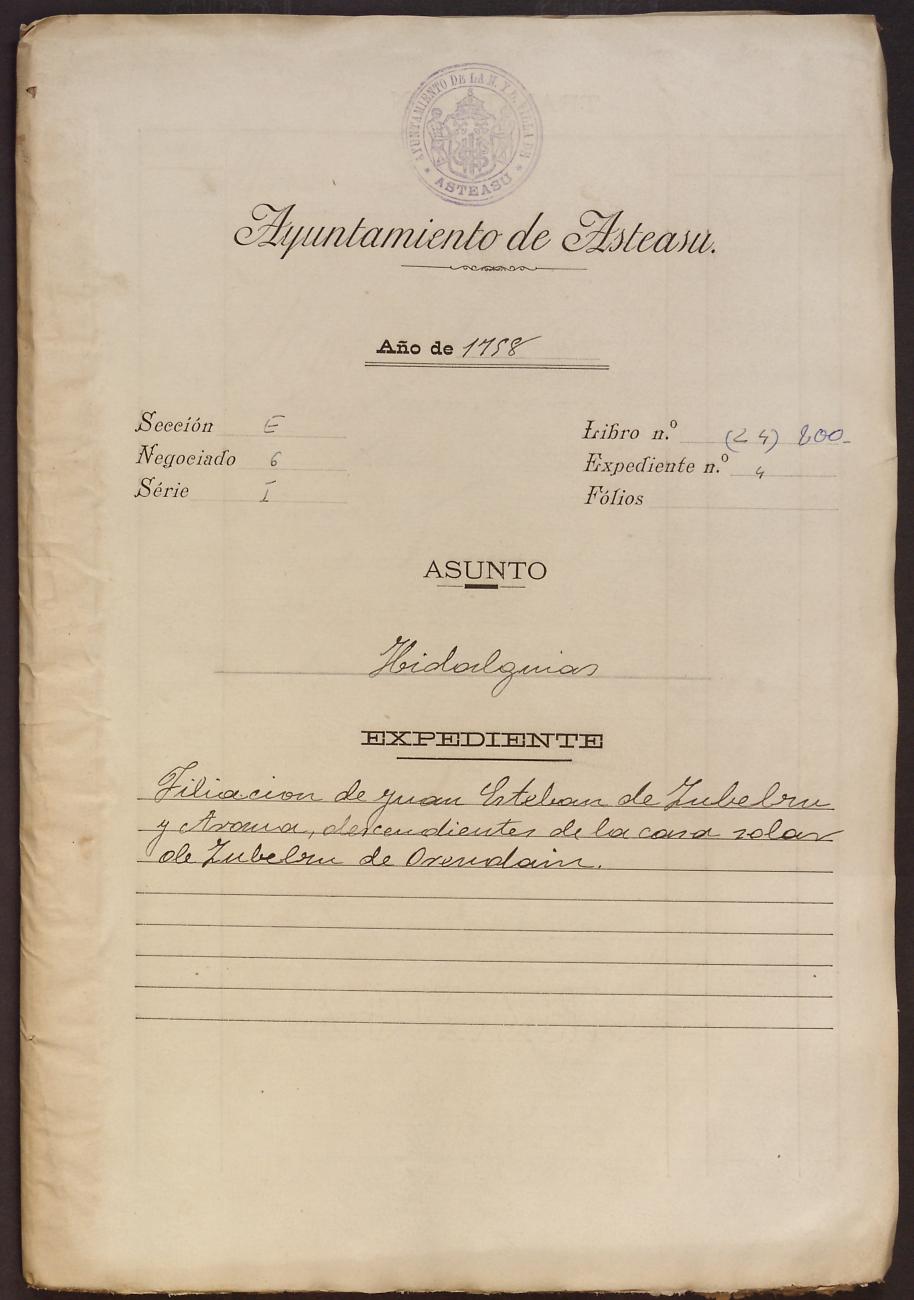 AYUNTAMIENTO DE LA N. Y L. VILLA DE
* ASTEASU *
Ayuntamiento de Asteasu.
Año de 1758
Sección E
Negociado 6
Série I
Libro n.º (24) 200-
Expediente n.º 4
Fólios
ASUNTO
Hidalguias
EXPEDIENTE
Filiacion de Juan Esteban de Zubelzu
y Arana, descendientes de la casa solar
de Zubelzu de Orendain.